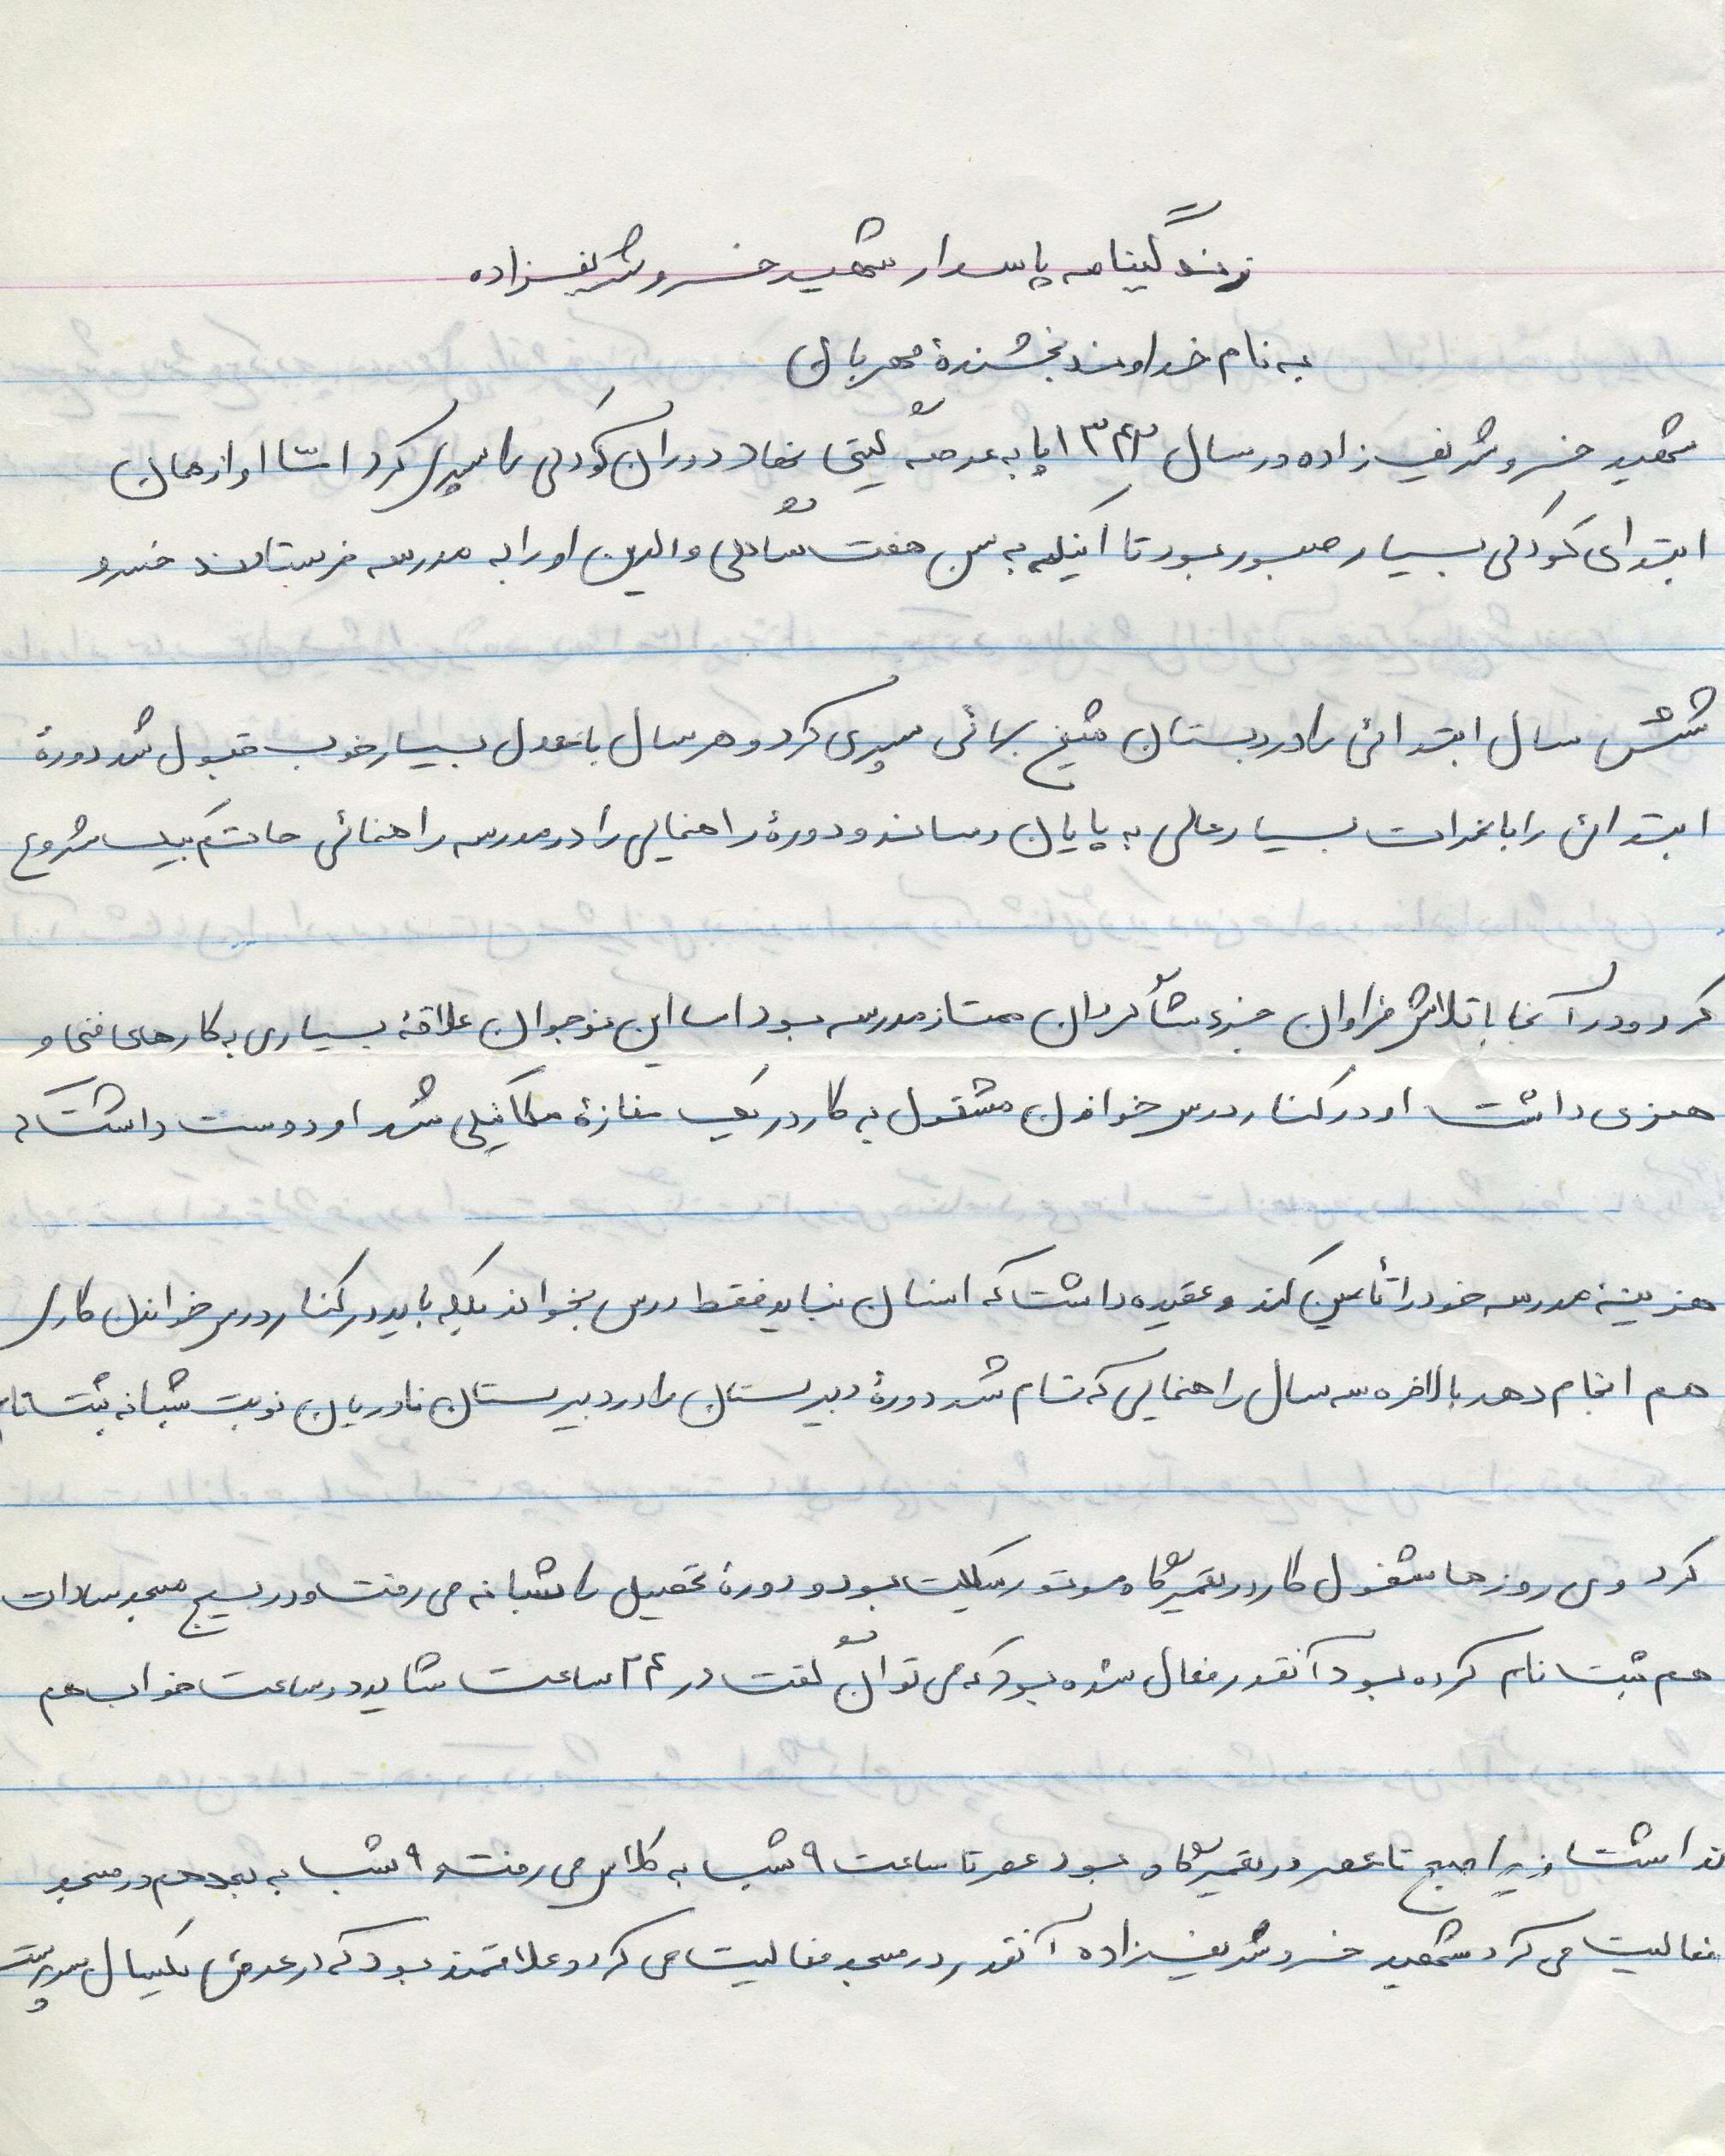 زندگینامه پاسدار شهید خسرو شریفزاده
به نام خداوند بخشندهٔ مهربان
شهید خسرو شریف زاده در سال ۱۳۴۳ پا به عرصه گیتی نهاد دوران کودکی را سپری کرد امّا او از همان
ابتدای کودکی بسیار صبور بود تا اینکه به سن هفت سالگی والدین او را به مدرسه فرستادند خسرو
شش سال ابتدائی را در دبستان شیخ بهائی سپری کرد و هر سال با معدل بسیار خوب قبول شد دورهٔ
ابتدائی را با نمرات بسیار عالی به پایان رساند و دورهٔ راهنمایی را در مدرسه راهنمائی حاتم بیک شروع
کرد و در آنجا با تلاش فراوان جزء شاگردان ممتاز مدرسه بود اما این نوجوان علاقهٔ بسیاری به کارهای فنی و
هنری داشت او در کنار درس خواندن مشغول به کار در یک مغازهٔ مکانیکی شد او دوست داشت که
هزینه مدرسه خود را تأمین کند و عقیده داشت که انسان نباید فقط درس بخواند بلکه باید در کنار درس خواندن کاری
هم انجام دهد بالاخره سه سال راهنمایی که تمام شد دورهٔ دبیرستان را در دبیرستان نادریان نوبت شبانه ثبت نام
کرد وی روزها مشغول کار در تعمیرگاه موتورسیکلت بود و دورهٔ تحصیل را شبانه می رفت و در بسیج مسجد سادات
هم ثبت نام کرده بود آنقدر فعال شده بود که می توان گفت در ۲۴ ساعت شاید دو ساعت خواب هم
نداشت زیرا صبح تا عصر در تعمیرگاه بود عصر تا ساعت ۹ شب به کلاس می رفت و ۹ شب به بعد هم در مسجد
فعالیت می کرد شهید خسرو شریفزاده آنقدر در مسجد فعالیت می کرد و علاقمند بود که در عرض یکسال سرپرست